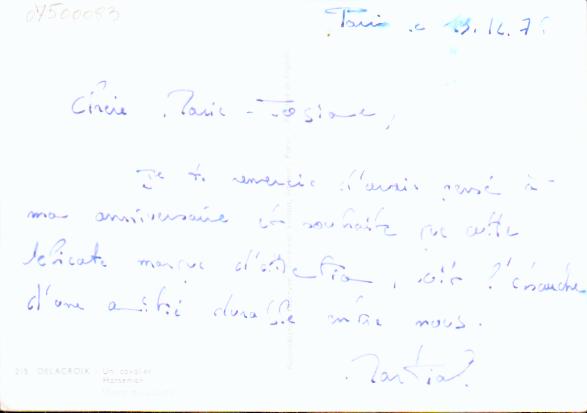 04500093
Paris le 13.12.7
Chère Marie-Josiane,
Je te remercie d'avoir pensé à
mon anniversaire et souhaite que cette
délicate marque d'attention, soit l'ébauche
d'une amitié durable entre nous.
Martial
215 DELACROIX - Un cavalier
Horseman